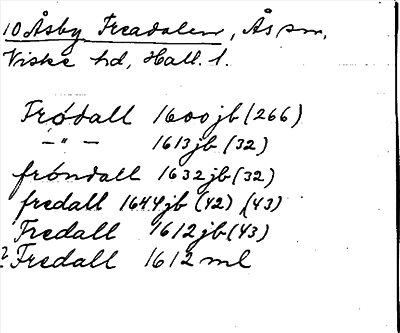 10 Åsby Freadalen, Ås sn,
Viske hd, Hall. l.
Frödall 1600 jb (266)
— " — 1613 jb (32)
fröndall 1632 jb (32)
fredall 1644 jb (42) (43)
Fredall 1612 jb (43)
? Fredall 1612 ml